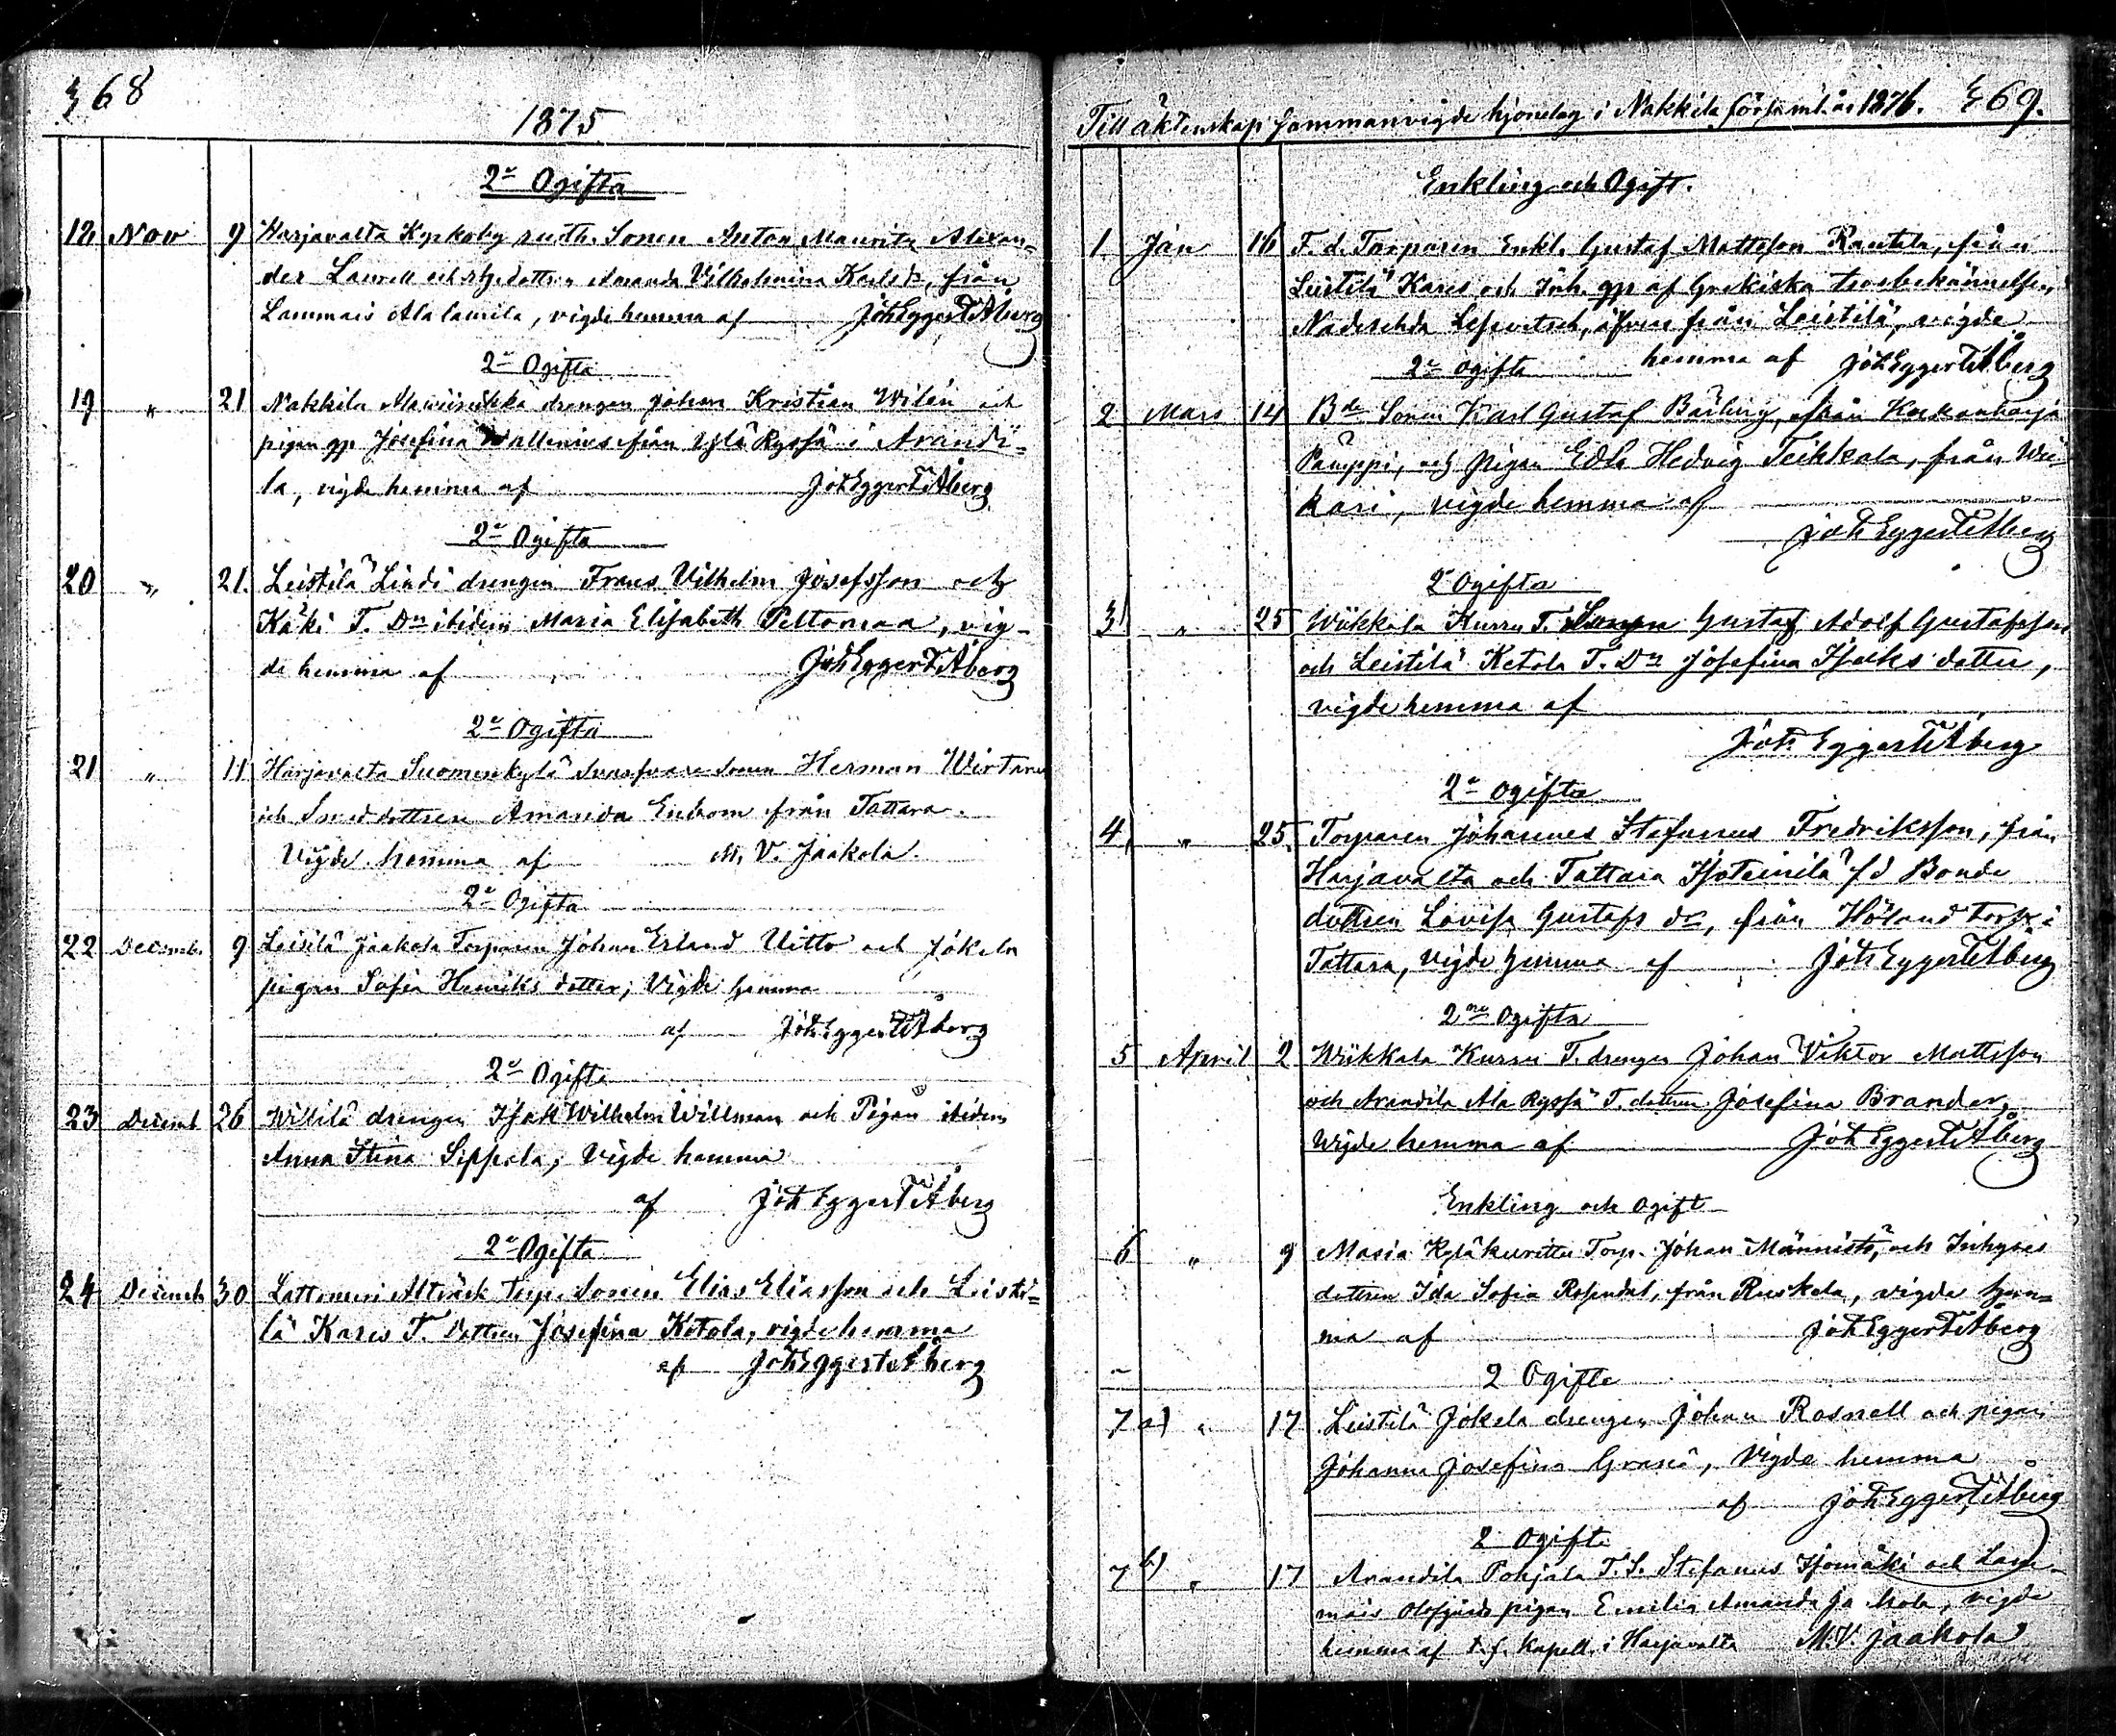 368
1875
2ne Ogifta
18 Nov 9 Harjavalta Kyrkoby rusth. Sonen Anton Mauritz Alexan-
der Laurell och dottren Amanda Vilhelmina Karls dr, från
Lammais Alalamila, vigde hemma af Joh Eggert Åberg
2ne Ogifta
19 " 21 Nakkila drengen Johan Kristian Wilén och
pigan gp Josefina Wallenius från Ylä Ryssä i Arandi-
la, vigde hemma af Joh Eggert Åberg
2ne Ogifta
20 " 21. Leistilä Lindi drengen Frans Vilhelm Josefsson och
Käki T. Dn ibidem Maria Elisabeth Peltomaa, vig-
de hemma af Joh Eggert Åberg
2ne Ogifta
21 " 11 Harjavalta Suomenkylä Sonen Herman Wirtanen
och Smeddottren Amanda Enbom från Tattara.
Vigde hemma af M. V. Jaakola.
2ne Ogifta
22 Decemb. 9 Leistilä Jaakola Torparen Johan Erland Uitto och Jokela
pigan Sofia Henriks dotter; Vigde hemma
af Joh Eggert Åberg
2ne Ogifta
23 Decemb 26 Willilä drengen Isak Wilhelm Willman och Pigan ibidem
Anna Stina Seppala; Vigde hemma
af Joh Eggert Åberg
2ne Ogifta
24 Decemb 30 Lattomeri Torp. Sonen Elias Eliasson och Leisti-
lä Kares T. Dottren Josefina Ketola, vigde hemma
af Joh Eggert Åberg
Till äktenskap sammanvigde hjonelag i Nakkila församl. år 1876. 369.
Enkling och Ogift.
1. Jan 16 F. d. Torparen Enkl. Gustaf Mattsson Rautila, från
Leistilä Kares och Inh. gp af Grekiska trosbekännelsen,
Nadeschda, äfven från Leistilä, vigde
hemma af Joh Eggert Åberg
2ne ogifta
2 Mars 14 Bde Sonen Karl Gustaf Bärling, från
Pämppi, och pigan Edla Hedvig Teikkala, från Wii-
kari, vigde hemma af
Joh Eggert Åberg
2 Ogifta
3 " 25 Wiikkala Kurru T. Sonen Gustaf Adolf Gustafsson
och Leistilä Ketola T. Dn Josefina Isaks dotter,
vigde hemma af
Joh Eggert Åberg
2ne ogifta
4 " 25. Torparen Johannes Stefanus Fredriksson, från
Harjavalta och Tattara Isoteinilä f d Bonde
dottren Lovisa Gustafs dr, från torp i
Tattara, vigde hemma af Joh Eggert Åberg
2ne ogifta
5 April 2 Wiikkala Kurru T. drengen Johan Viktor Mattsson
och Arandila Ala Ryssä T. dottren Josefina Brander,
Wigde hemma af Joh Eggert Åberg
Enkling och ogift
6 " 9 Masia Torp. Johan Männistö, och Inhyses
dottren Ida Sofia Rosendal, från Ruskela, vigde hem-
ma af Joh Eggert Åberg
2 Ogifte
7 a) " 17 Leistilä Jokela drengen Johan Rosnell och pigan
Johanna Josefina, Vigde hemma
af Joh Eggert Åberg
2 Ogifte
7 b) " 17 Arandila Pohjala T. S. Stefanus Isomäki och Lam-
mais pigan Emilia Amanda, vigde
hemma af t. f. Kapell. i Harjavalta M. V. Jaakola